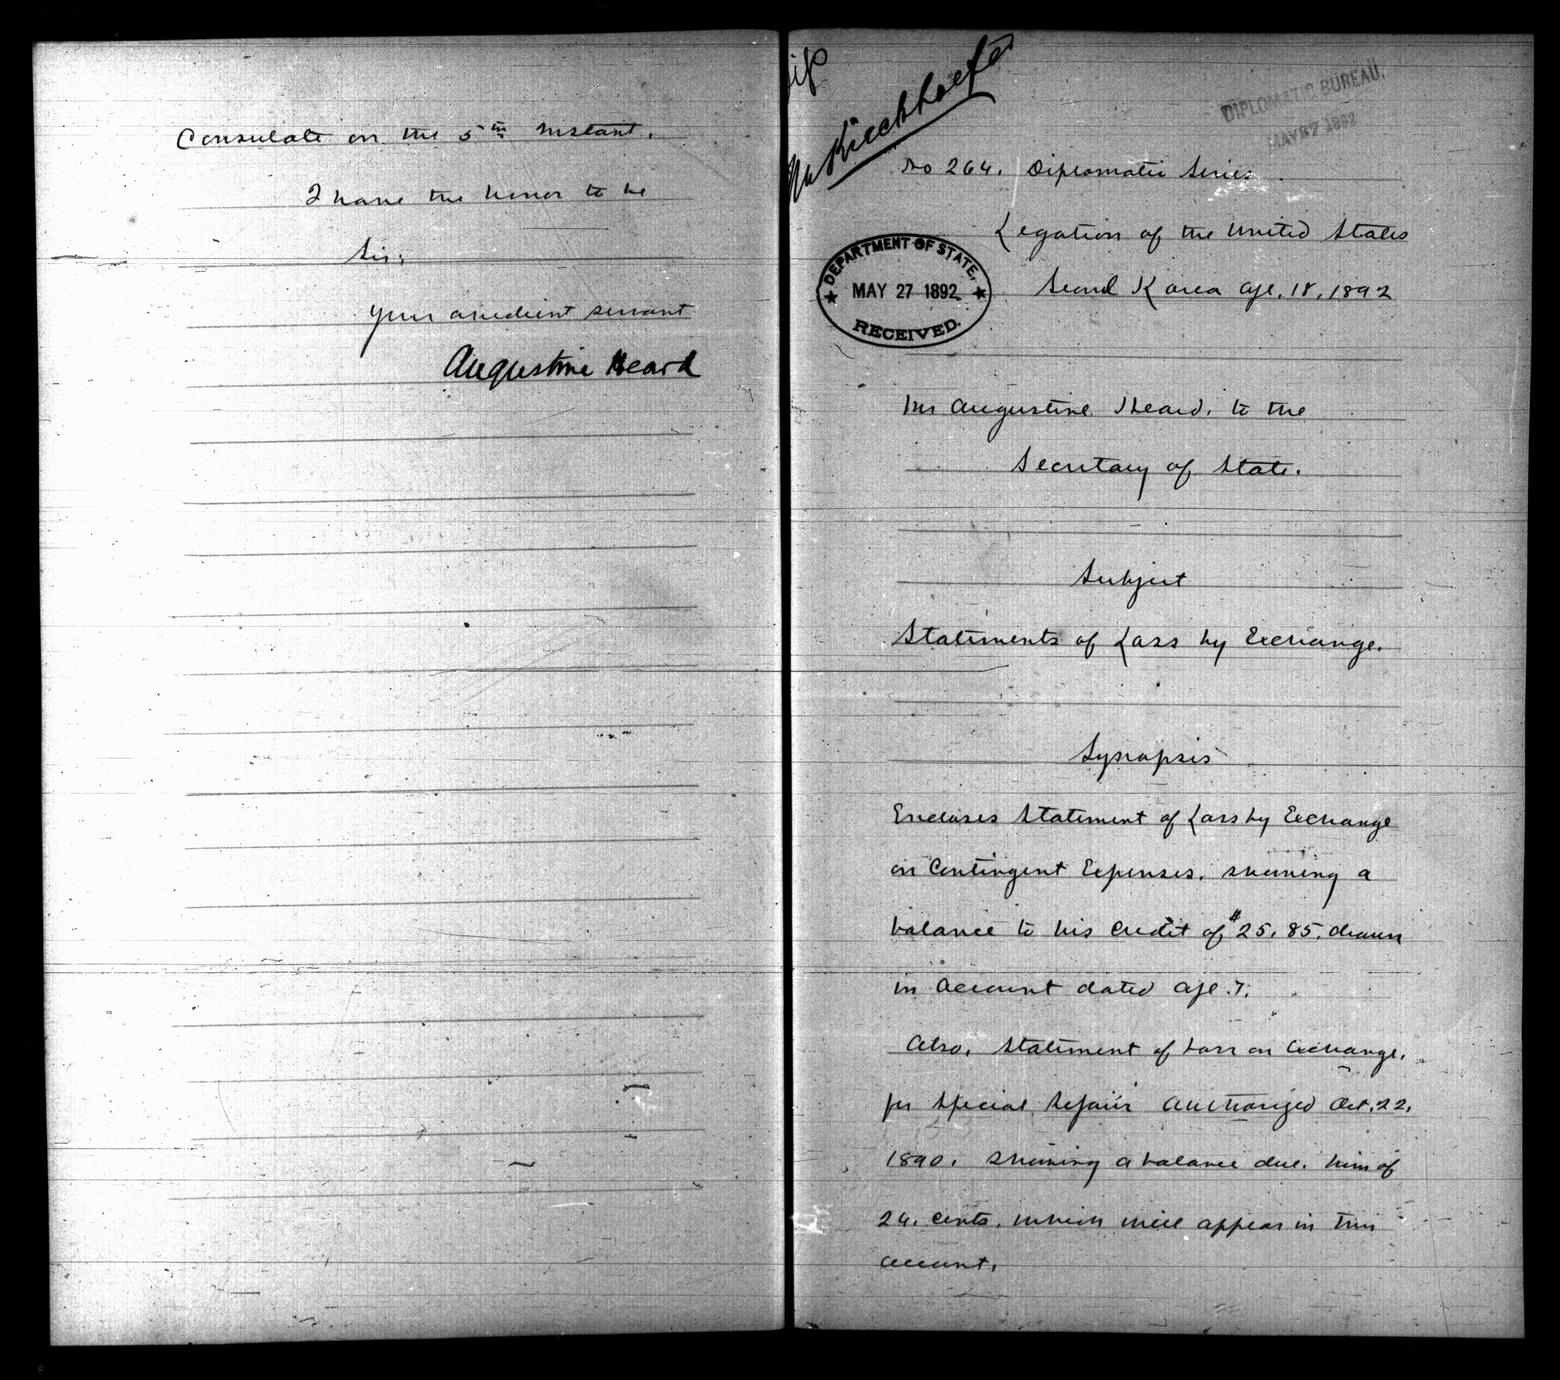 Consulate on the 5th Instant.
I have the honor to be
Sir,
Your obedient servant
Augustine Heard
DIPLOMATIC BUREAU.
MAY 27 1892
No 264. Diplomatic Series
Legation of the United States
DEPARTMENT OF STATE,
MAY 27 1892
RECEIVED.
Seoul Korea Ap. 18, 1892
Mr Augustine Heard. to the
Secretary of State.
Subject
Statements of Loss by Exchange.
Synopsis
Encloses Statement of Loss by Exchange
on Contingent Expenses, showing a
balance to his credit of $25.85. drawn
in account dated Ap. 7.
Also, Statement of Loss on Exchange,
for Special Repairs authorized Oct. 22,
1890. showing a balance due him of
24. cents. which will appear in this
account.